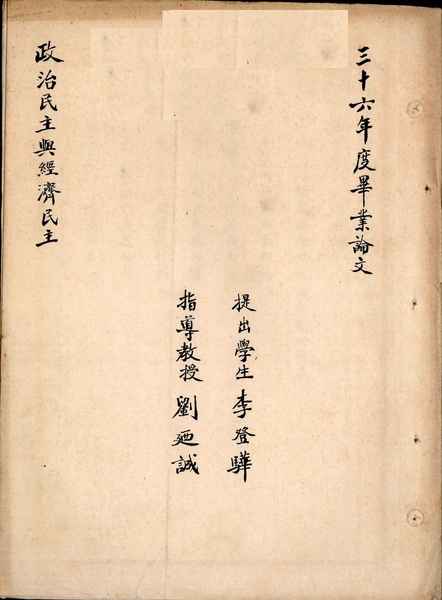 三十六年度畢業論文
提出學生 李登驊
指導教授 劉廼誠
政治民主與經濟民主